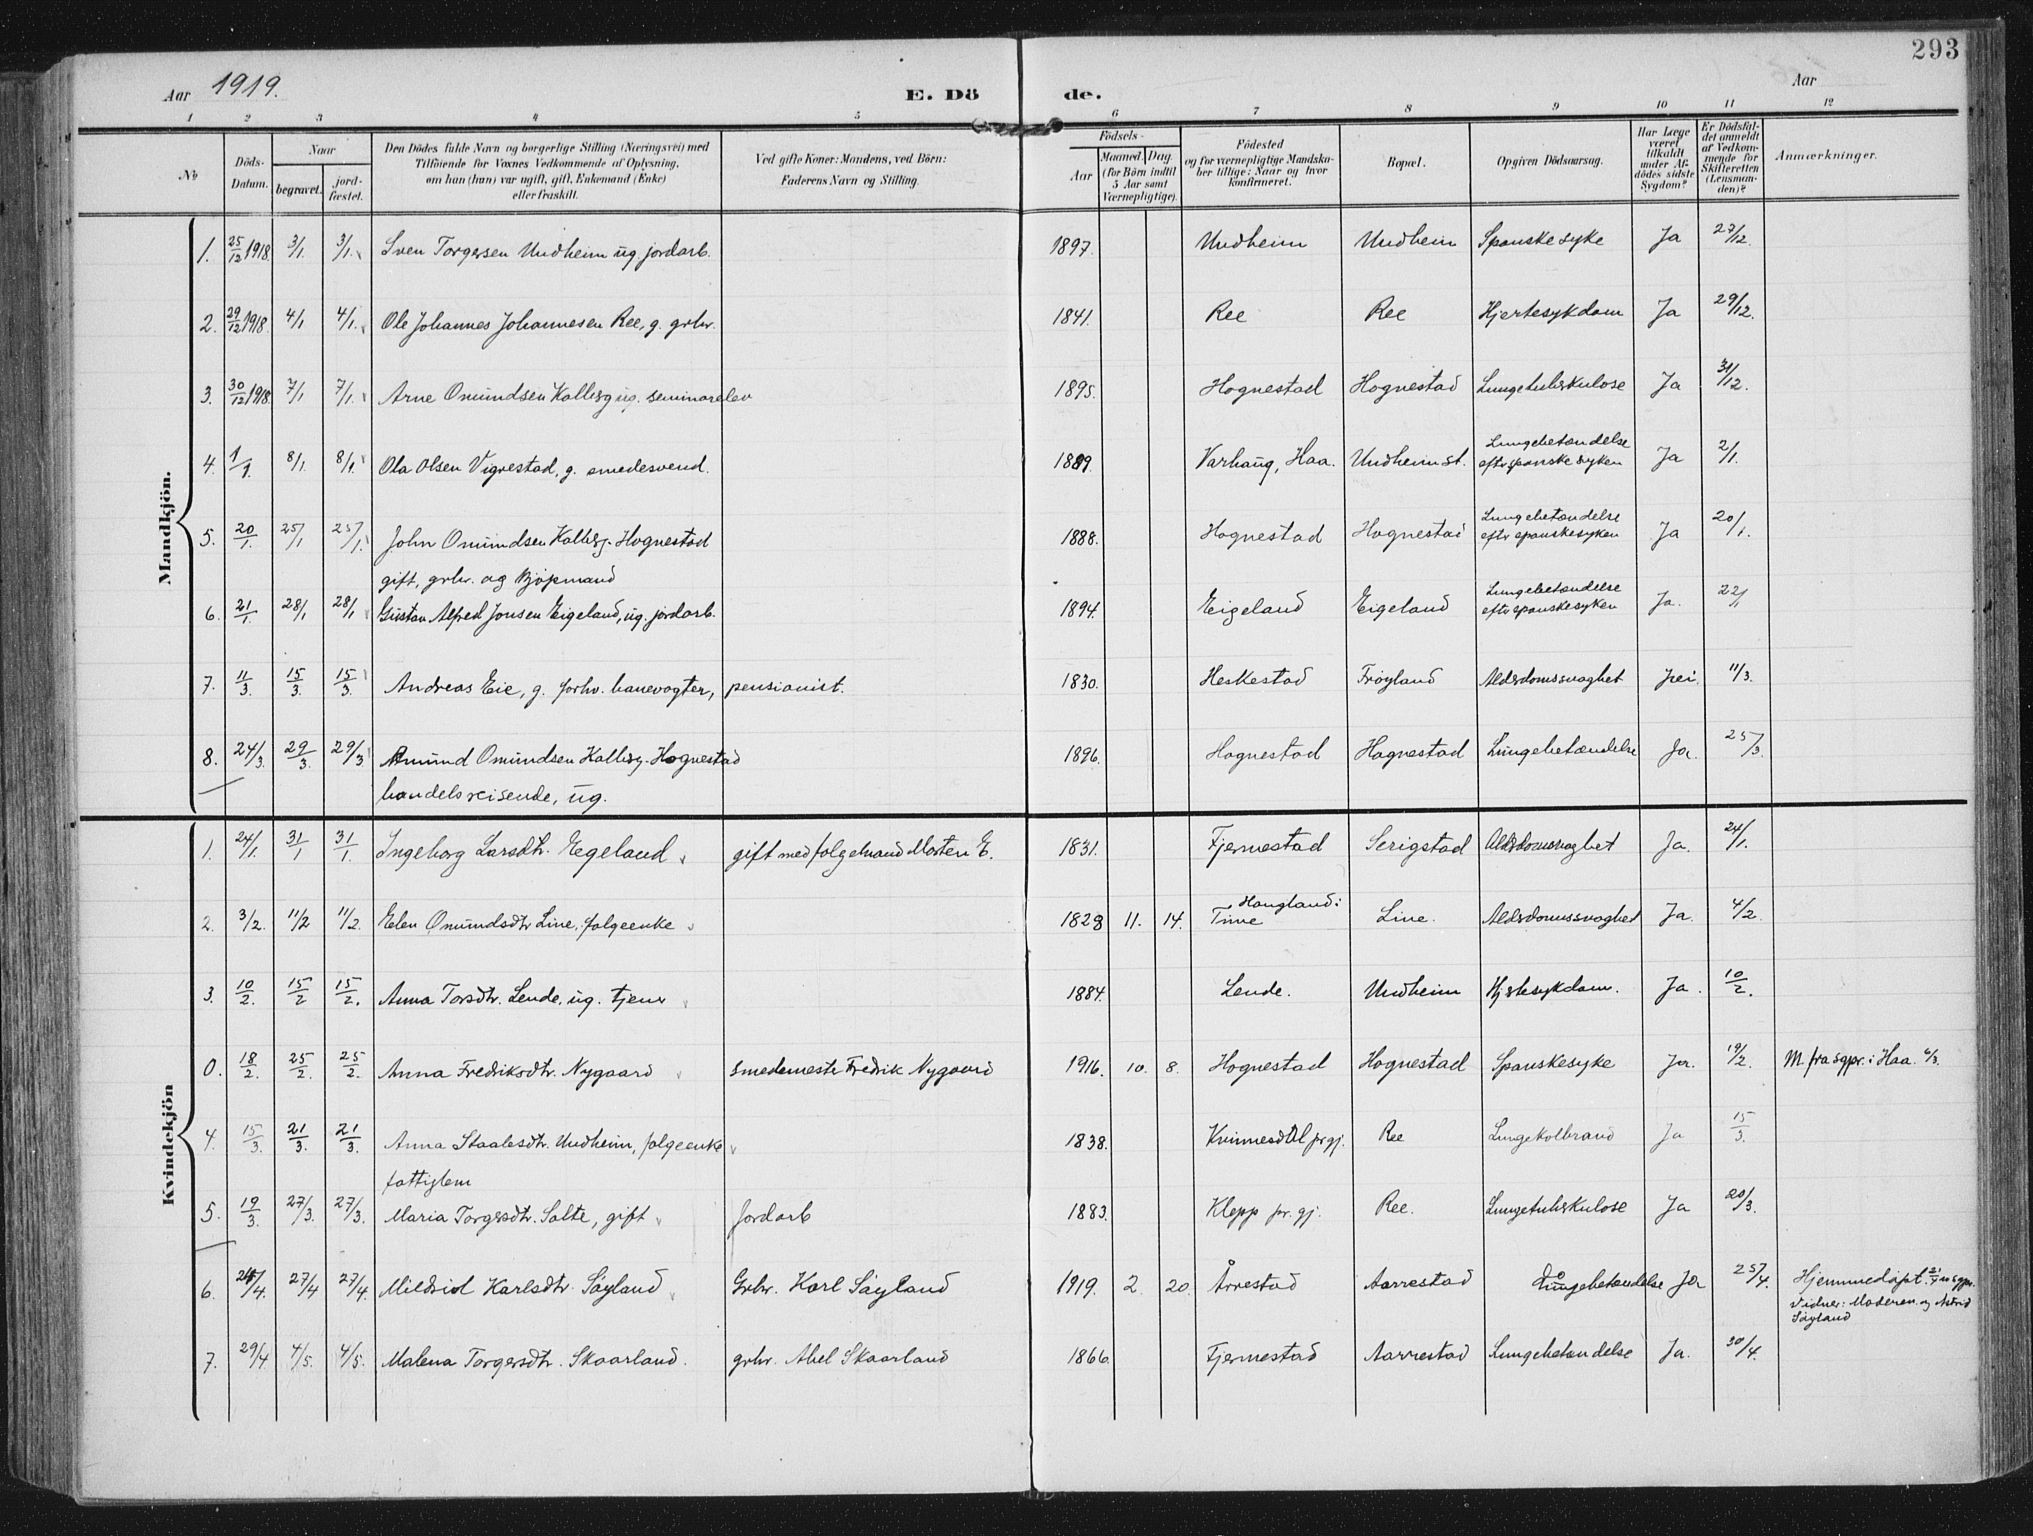 293
Aar 1919.
E. Dö de.
Aar
1 2 3 4 5 6 7 8 9 10 11 12
No
Döds-Datum.
Naar
begravet.
jord-fæstet.
Den Dödes fulde Navn og borgerlige Stilling (Næringsvei) med
Tilföiende for Voxnes Vedkommende af Oplysning,
om han (hun) var ugift, gift, Enkemand (Enke)
eller fraskilt.
Ved gifte Koner: Mandens, ved Börn:
Faderens Navn og Stilling.
Födsels-
Aar
Maaned. Dag.
(for Börn indtil
5 Aar samt
Værnepligtige).
Födested
og for værnepligtige Mandska-
ber tillige: Naar og hvor
konfirmeret.
Bopæl.
Opgiven Dödsaarsag.
Har Læge
været
tilkaldt
under Af-
dödes sidste
Sygdom?
Er Dödsfal-
det anmeldt
af Vedkom-
mende for
Skifteretten
(Lensman-
den)?
Anmærkninger.
Mandkjön.
1. 25/12 1918. 3/1 3/1. Sven Torgersen Undheim ug. jordarb. 1897. Undheim Undheim Spanske syke Ja 27/12.
2. 29/12 1918. 4/1 4/1. Ole Johannes Johannesen Ree, g. grbr. 1841. Ree Ree Hjertesykdom Ja 29/12.
3. 30/12 1918. 7/1 7/1. Arne Omundsen Kalberg ug. seminarelev 1895. Hognestad Hognestad Lungetuberkulose Ja 31/12.
4. 1/1. 8/1. 8/1. Ola Olsen Vigrestad, g. smedesvend. 1889. Varhaug, Haa. Undheim st. Lungebetændelse
efter spanske syken Ja 2/1.
5. 20/1. 25/1 25/1. John Omundsen Kalberg-Hognestad 1888. Hognestad Hognestad Lungebetændelse
efter spanskesyken Ja 20/1.
gift, grbr. og kjøpmand
6. 21/1. 28/1 28/1 Gustav Alfred Jonsen Eigeland, ug. jordarb. 1894. Eigeland Eigeland Lungebetændelse
efter spanskesyken Ja. 22/1
7. 11/3. 15/3. 15/3. Andreas Eie, g. forhv. banevogter, pensionist. 1830. Heskestad Frøyland Alderdomssvaghet nei. 11/3.
8. 24/3. 29/3. 29/3 Amund Omundsen Kalberg-Hognestad 1896. Hognestad Hognestad Lungebetændelse Ja. 25/3.
handelsreisende, ug.
Kvindekjön
1. 24/1. 31/1 31/1. Ingeborg Larsdtr. Egeland gift med folgemand Morten E. 1831. Fjermestad Serigstad Alderdomssvaghet Ja. 24/1.
2. 3/2. 11/2 11/2. Elen Omundsdtr Line, folgeenke 1828 11. 14. Haugland i
Time Line. Alderdomssvaghet Ja. 4/2.
3. 10/2. 15/2 15/2. Anna Torsdtr. Lende, ug. tjener 1884. Lende. Undheim Hjertesykdom. Ja. 10/2.
0. 18/2. 25/2. 25/2. Anna Fredriksdtr. Nygaard smedemester Fredrik Nygaard 1916. 10. 8. Hognestad Hognestad Spanskesyke Ja. 19/2. M. fra sgpr. i Haa. 6/3.
4. 15/3. 21/3. 21/3. Anna Staalesdtr. Undheim, folgeenke 1838. Kvinnesdal prgj. Ree Lungekolbrand Ja 15/3.
fattiglem
5. 19/3. 27/3. 27/3. Maria Torgersdtr. Salte, gift Jordarb 1883. Klepp pr. gj. Ree. Lungetuberkulose Ja 20/3.
6. 24/4. 27/4 27/4. Mildrid Karlsdtr. Søyland Grbr. Karl Søyland 1919. 2. 20. Årrestad Aarrestad Lungebetændelse Ja 25/4. Hjemmedøpt
Vidner: Moderen og Astrid
Søyland
7. 29/4 4/5. 4/5. Malena Torgersdtr. Skaarland. grbr. Abel Skaarland 1866. Fjermestad Aarrestad Lungebetændelse Ja. 30/4.